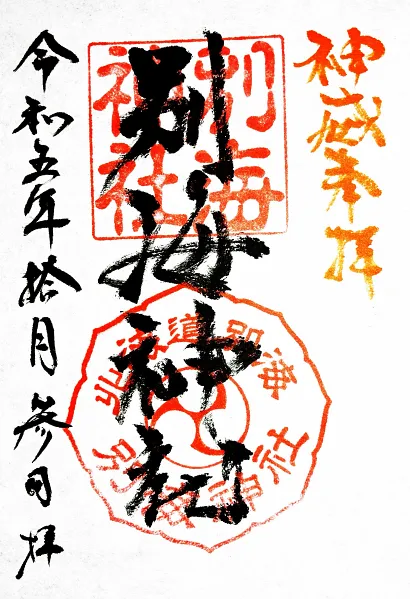 神威奉拝
別海神社
別海
神社
北海道別海
別海神社
令和五年拾月参日拝